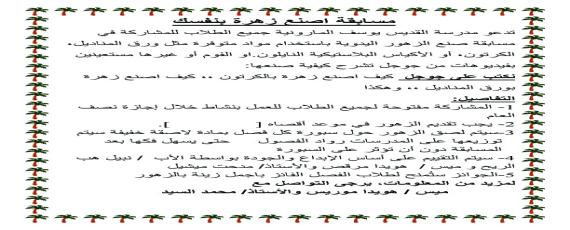 مسابقة اصنع زهرة بنفسك
تدعو مدرسة القديس يوسف المارونية جميع الطلاب للمشاركة في
مسابقة صنع الزهور اليدوية باستخدام مواد متوفرة مثل ورق المناديل،
الكرتون، أو الأكياس البلاستيكية النايلون.او الفوم أو غيرها مستعينين
بفيديوهات من جوجل تشرح كيفية صنعها:
نكتب على جوجل كيف اصنع زهرة بالكرتون .. كيف اصنع زهرة
بورق المناديل .. وهكذا
التفاصيل:
1- المشاركة مفتوحة لجميع الطلاب للعمل بنشاط خلال إجازة نصف
العام
2- يجب تقديم الزهور في موعد أقصاه [ ].
3-سيتم لصق الزهور حول سبورة كل فصل بمادة لاصقة خفيفة سيتم
توزيعها على المدرسات رواد الفصول حتى يسهل فكها بعد
المسابقة دون أن تؤثر على السبورة
4- سيتم التقييم على أساس الإبداع والجودة بواسطة الأب / نبيل هب
الريح و ميس / هويدا مرقص والأستاذ/ مدحت ميشيل
5-الجوائز ستمنح لطلاب الفصل الفائز بأجمل زينة بالزهور
لمزيد من المعلومات، يرجى التواصل مع
ميس / هويدا موريس والأستاذ/ محمد السيد